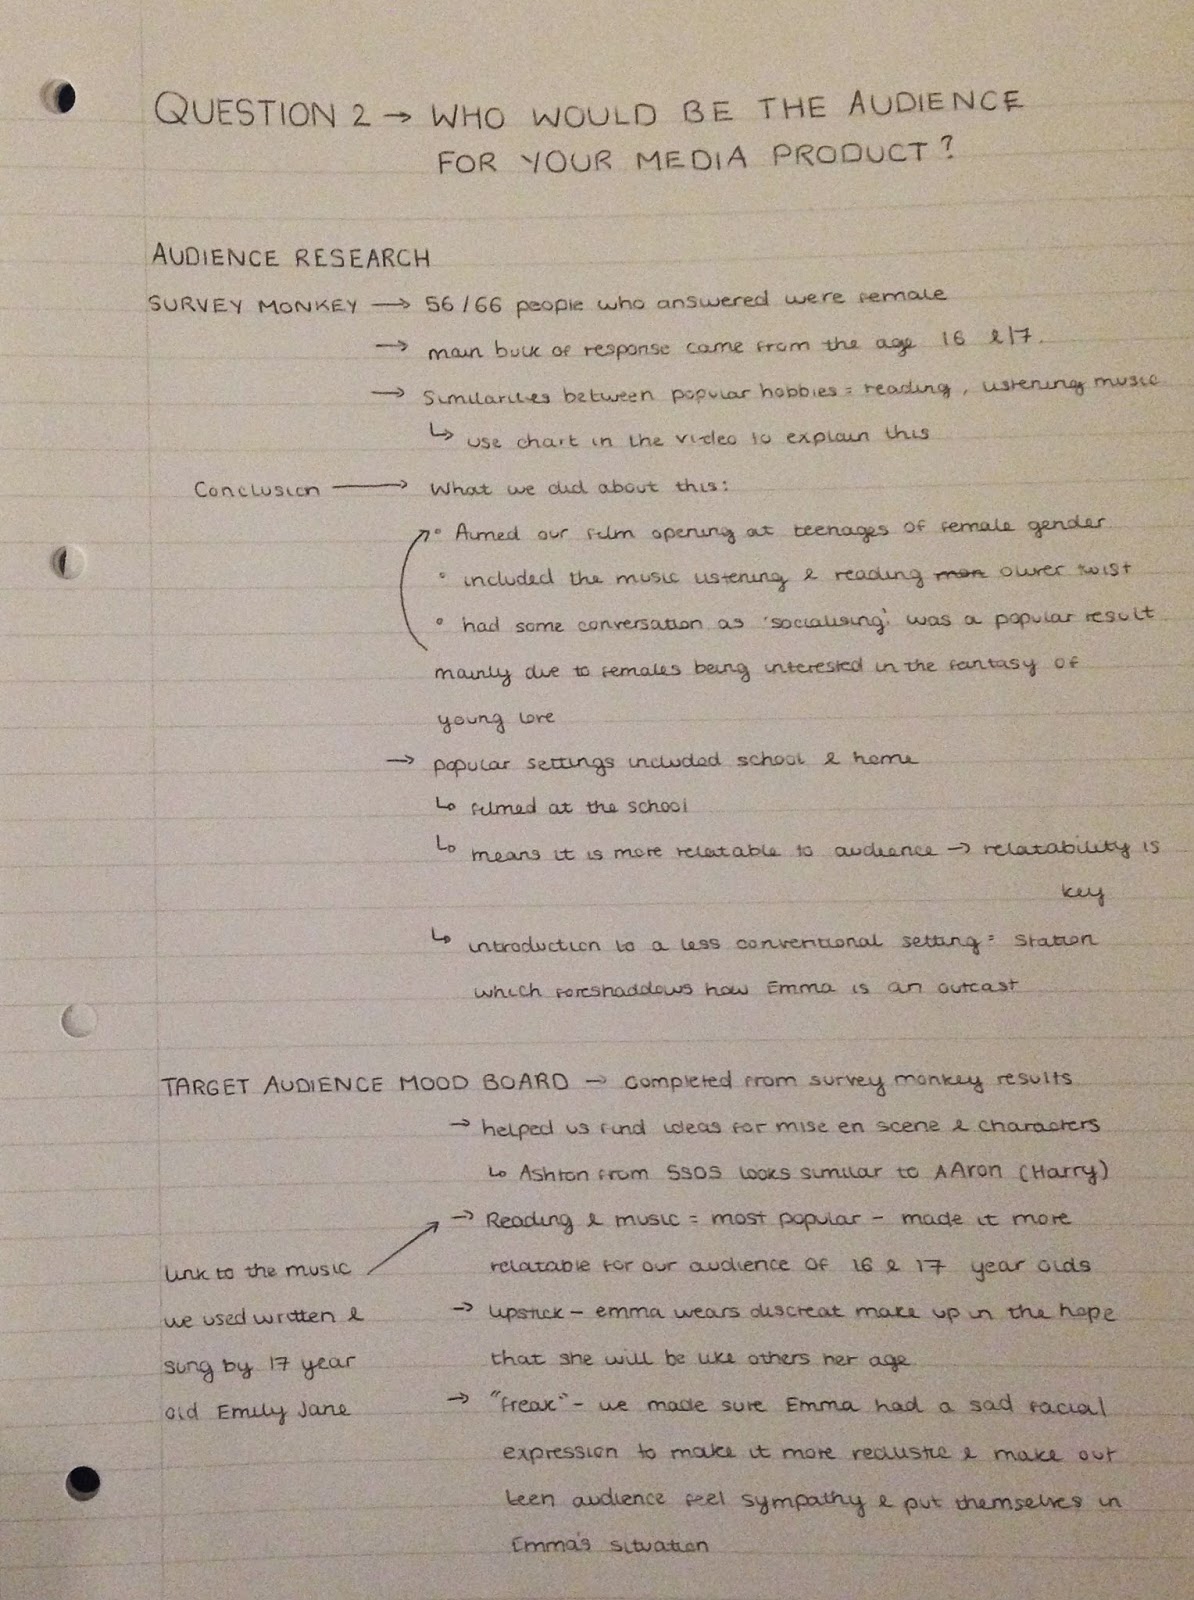 QUESTION 2 → WHO WOULD BE THE AUDIENCE
FOR YOUR MEDIA PRODUCT?
AUDIENCE RESEARCH
SURVEY MONKEY → 56/66 people who answered were female
→ main bulk of response came from the age 16 & 17.
→ Similarities between popular hobbies = reading, listening music
↳ use chart in the video to explain this
Conclusion → What we did about this:
• Aimed our film opening at teenages of female gender
• included the music listening & reading oliver twist
• had some conversation as 'socialising' was a popular result
mainly due to females being interested in the fantasy of
young love
→ popular settings included school & home
↳ filmed at the school
↳ means it is more relatable to audience → relatability is
key
↳ introduction to a less conventional setting = station
which foreshaddows how Emma is an outcast
TARGET AUDIENCE MOOD BOARD → completed from survey monkey results
→ helped us find ideas for mise en scene & characters
↳ Ashton from 5SOS looks similar to AAron (Harry)
→ Reading & music = most popular - made it more
relatable for our audience of 16 & 17 year olds
link to the music
we used written &
sung by 17 year
old Emily Jane
→ lipstick - emma wears discreat make up in the hope
that she will be like others her age
→ "freak" - we made sure Emma had a sad facial
expression to make it more realistic & make out
teen audience feel sympathy & put themselves in
Emma's situation